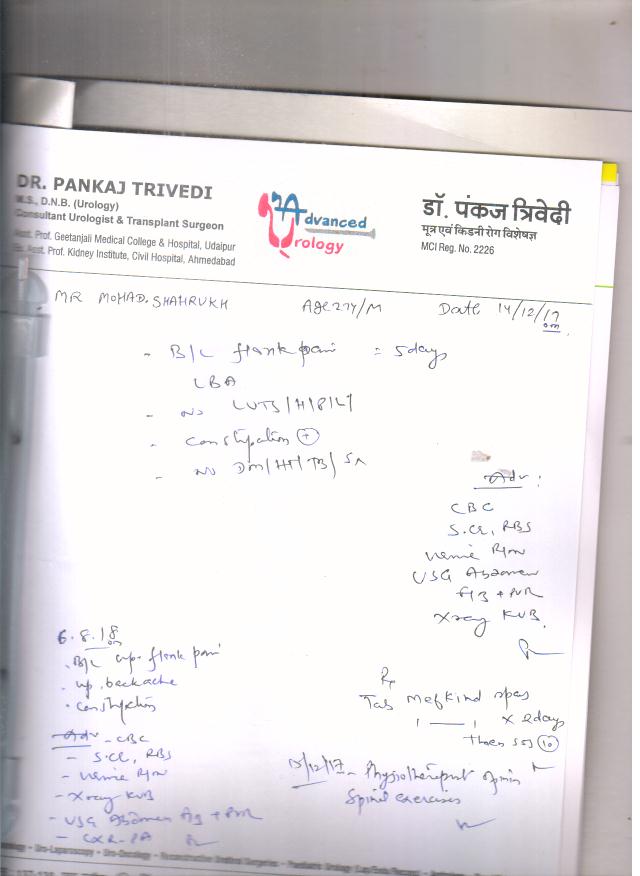 DR. PANKAJ TRIVEDI
M.S., D.N.B. (Urology)
Consultant Urologist & Transplant Surgeon
Asst. Prof. Geetanjali Medical College & Hospital, Udaipur
Ex. Asst. Prof. Kidney Institute, Civil Hospital, Ahmedabad
Advanced
Urology
डॉ. पंकज त्रिवेदी
मूत्र एवं किडनी रोग विशेषज्ञ
MCI Reg. No. 2226
MR MOHAD. SHAHRUKH Age 27Y/M Date 14/12/17
- B/L flank pain = 5 days
LBA
- No LUTS/H/P/L
- Constipation (+)
- No DM/HT/TB/SA
Adv :
CBC
S.Cr, RBS
Urine R/M
USG Abdomen
+ PVR
Xray KUB.
Rx
Tab Mefkind spas
1 — 1 x 2 days
then sos (10)
15/12/17 - Physiotherapist opinion
Spinal exercises
6.8.18
. B/L flank pain
. backache
. constipation
Adv - CBC
- S.Cr, RBS
- Urine R/M
- Xray KUB
- USG Abdomen + PVR
- CXR-PA
Uro-Laparoscopy - Uro-Oncology - Reconstructive Urethral Surgeries - Paediatric Urology